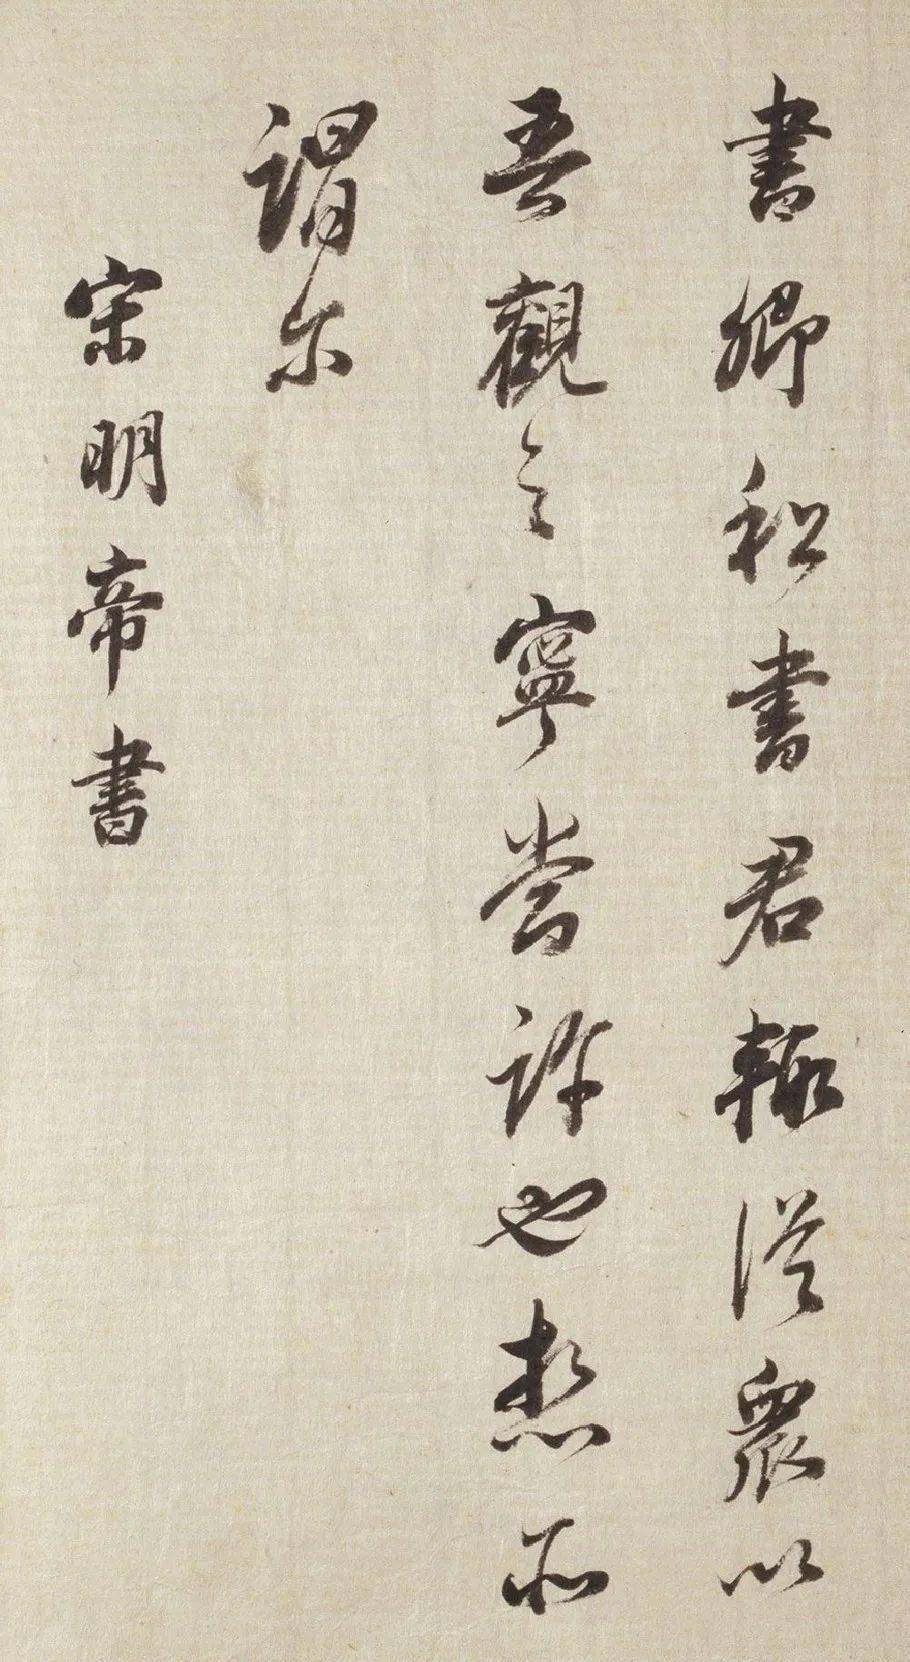 書卿書君輒從衆以
吾觀之寧嘗許也想所
謂尔
宋明帝書